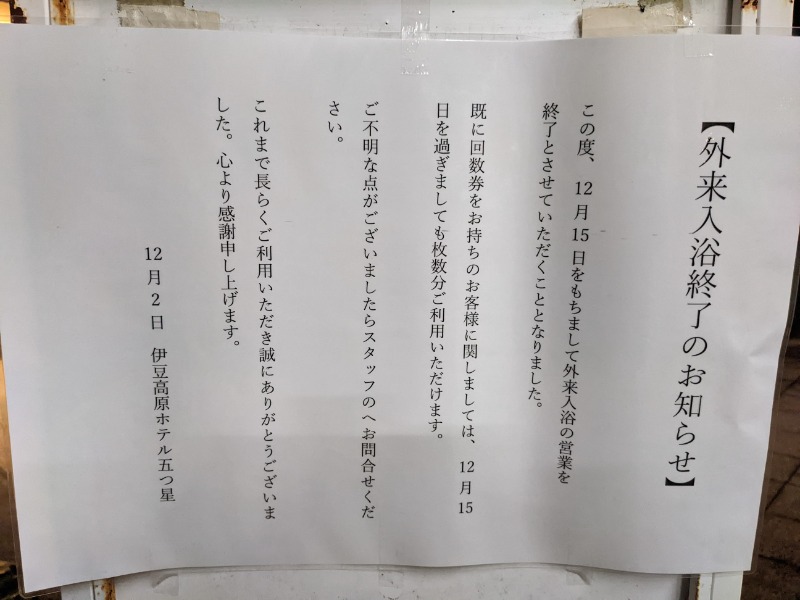 【外来入浴終了のお知らせ】
この度、12月15日をもちまして外来入浴の営業を
終了とさせていただくこととなりました。
既に回数券をお持ちのお客様に関しましては、12月15
日を過ぎましても枚数分ご利用いただけます。
ご不明な点がございましたらスタッフのへお問合せくだ
さい。
これまで長らくご利用いただき誠にありがとうございま
した。心より感謝申し上げます。
12月2日 伊豆高原ホテル五つ星